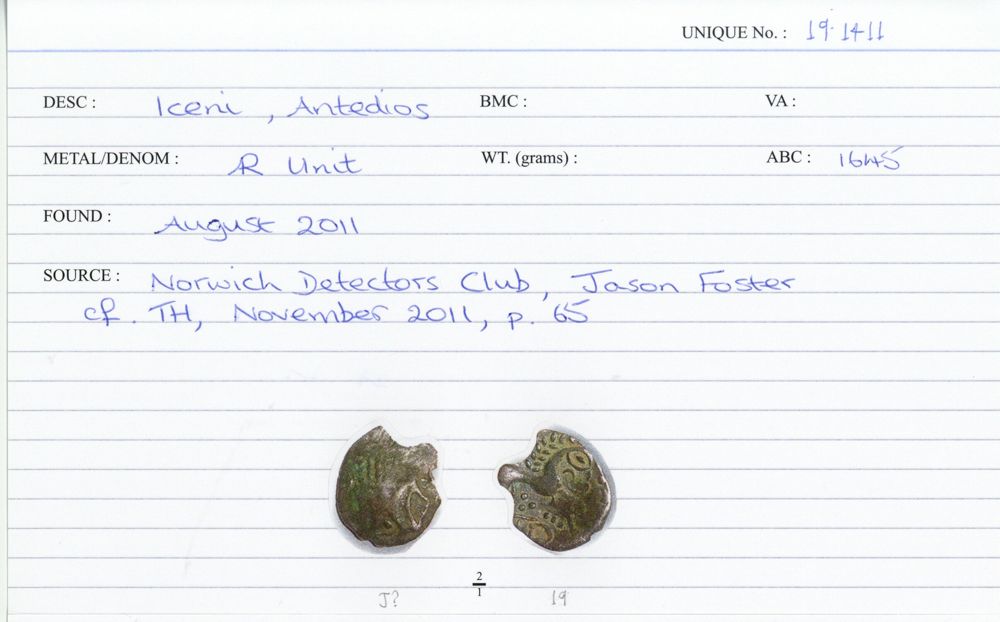 UNIQUE No. : 19.1411
DESC : Iceni, Antedios BMC : VA :
METAL/DENOM : AR Unit WT. (grams) : ABC : 1645
FOUND : August 2011
SOURCE : Norwich Detectors Club, Jason Foster
cf. TH, November 2011, p. 65
2
1
J? 19